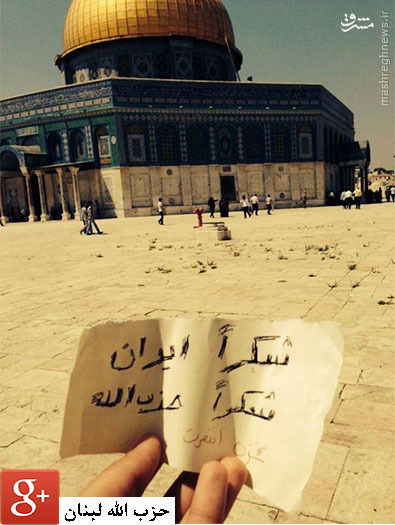 مشرق
mashreghnews.ir
شكراً ايران
شكراً حزب الله
غزه انتصرت
g+
حزب الله لبنان